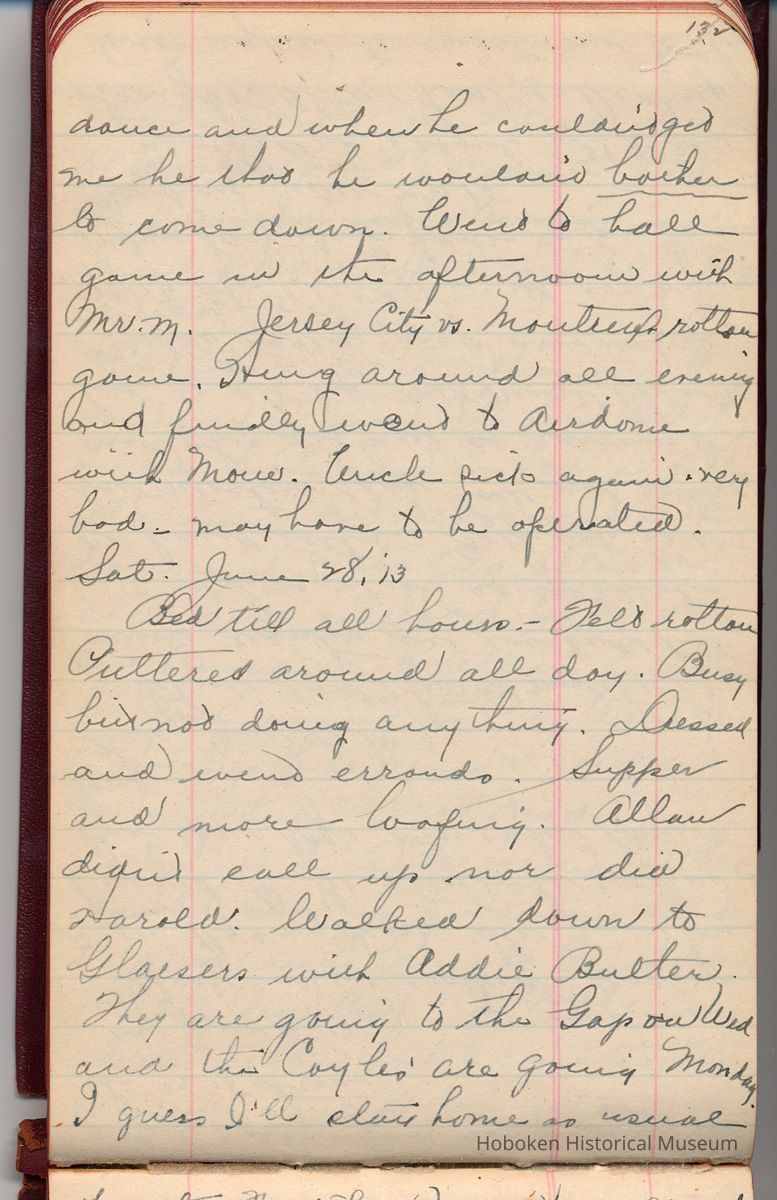 132
dance and when he couldn't get
me he shot he wouldn't bother
to come down. Went to ball
game in the afternoon with
Mr. M. Jersey City vs. Montreal rotten
game. Hung around all evening
and finally went to Airdome
with Mom. Uncle sick again. very
bad - may have to be operated.
Sat. June 28, '13
Bed till all hours. - Felt rotten
Puttered around all day. Busy
but not doing anything. Dressed
and went errands. Supper
and more loafing. Allan
didn't call up nor did
Harold. Walked down to
Glaesers with Addie Butter.
They are going to the Gap on Wed
and the Coyles are going Monday.
I guess I'll stay home as usual
Hoboken Historical Museum